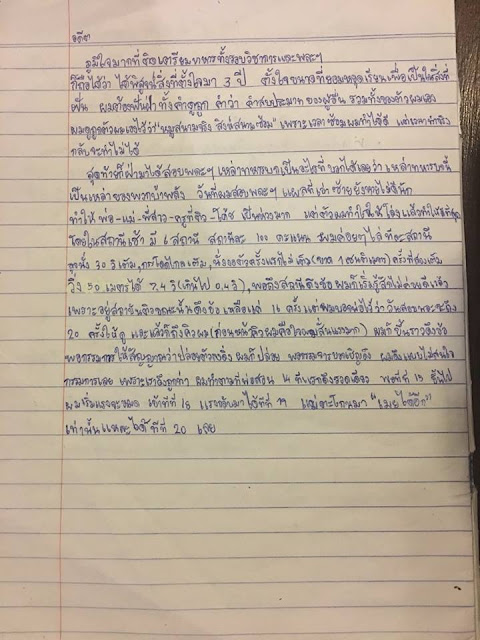 อดีต
ภูมิใจมากที่ติดเตรียมทหารทั้งรอบวิชาการและพละฯ
ก็ถือได้ว่า ได้พิสูจน์สิ่งที่ตั้งใจมา 3 ปี ตั้งใจขนาดที่ยอมหยุดเรียนเพื่อเป็นในสิ่งที่
ฝัน ผมต้องฟันฝ่า ทั้งคำดูถูก คำว่า คำสบประมาท ของผู้อื่น รวมทั้งของตัวผมเอง
ผมดูถูกตัวผมเองไว้ว่า "หมูสนามจริง สิงห์สนามซ้อม" เพราะเวลาซ้อมผมทำได้ดี แต่เวลาทำจริง
กลับจะทำไม่ได้
สุดท้ายก็ฝ่ามาได้สอบพละฯ เหล่าทหารบก เป็น ที่บอกได้เลยว่า เหล่าทหารบกนี้
เป็นเหล่าของพวกบ้าพลัง วันที่ผมสอบพละฯ แผลที่เข่าซ้ายยังหายไม่ดีนัก
ทำให้ พ่อ-แม่-พี่สาว-ครูที่ติว-โค้ช เป็นห่วงมาก แต่ตัวผมทำใจให้โล่ง แล้วทำให้ดีที่สุด
โดยในสถานีเช้า มี 6 สถานี สถานีละ 100 คะแนน ผมค่อยๆ ไล่ทีละสถานี
ลุกนั่ง 30 วิ เต็ม, กระโดดไกล เต็ม, นั่งงอตัวครั้งแรกไม่เต็ม (ขาด 1 เซนติเมตร) ครั้งที่สองเต็ม,
วิ่ง 50 เมตรได้ 7.4 วิ (เกินไป 0.4 วิ), พอถึงสถานีดึงข้อ ผมก็เริ่มรู้สึกไม่ดีแล้ว
เพราะอยู่สถาบันติวจากนั้นดึงข้อ เหลือแค่ 16 ครั้ง แต่ผมบอกพ่อไว้ว่า วันสอบจะถึง
20 ครั้งให้ดู และแล้วก็ถึงคิวผม (ก่อนหน้าคิวผมคือใจผมสั่นแรงมาก) ผมก็ขึ้นราวดึงข้อ
พอกรรมการให้สัญญาณว่าปล่อยตัวตรง ผมก็ปล่อย ผมดึงแบบไม่สนใจ
กรรมการเลย เพราะเราดึงถูกท่า ผมทำตามที่พ่อสอน 14 ทีแรกดึงรวดเดียว พอทีที่ 15 ขึ้นไป
ผมเริ่มแรงจะหมด เข้าทีที่ 18 แรงกลับมาได้ทีที่ 19 แม่ตะโกนมา "เมฆได้อีก"
เท่านั้นแหละได้ทีที่ 20 เลย